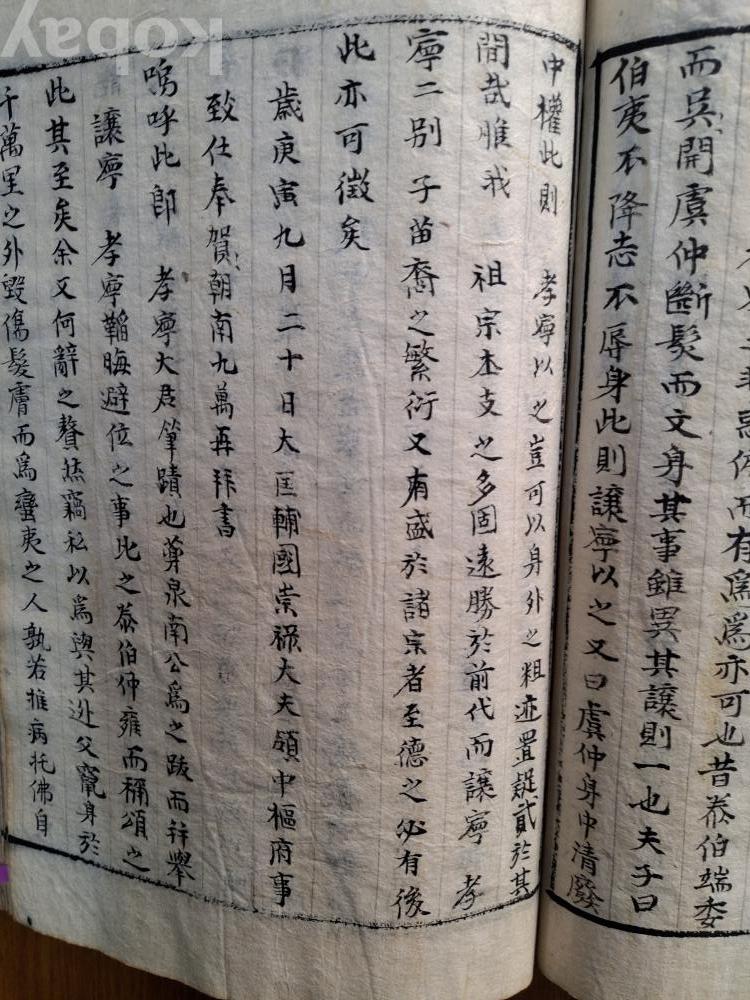 而有為為亦可也昔泰伯端委
而吳開虞仲斷髮而文身其事雖異其讓則一也夫子曰
伯夷不降志不辱身此則讓寧以之又曰虞仲身中清廢
中權此則 孝寧以之豈可以身外之粗迹置疑貳於其
間哉惟我 祖宗本支之多固遠勝於前代而讓寧 孝
寧二別子苗裔之繁衍又有盛於諸宗者至德之必有後
此亦可徵矣
歲庚寅九月二十日大匡輔國崇祿大夫領中樞府事
致仕奉賀朝南九萬再拜書
嗚呼此卽 孝寧大君筆蹟也藥泉南公為之跋而幷舉
讓寧 孝寧韜晦避位之事比之泰伯仲雍而稱頌之
此其至矣余又何辭之贅然竊私以為與其逃父竄身於
千萬里之外毀傷髮膚而為蠻夷之人孰若推病托佛自
kobay